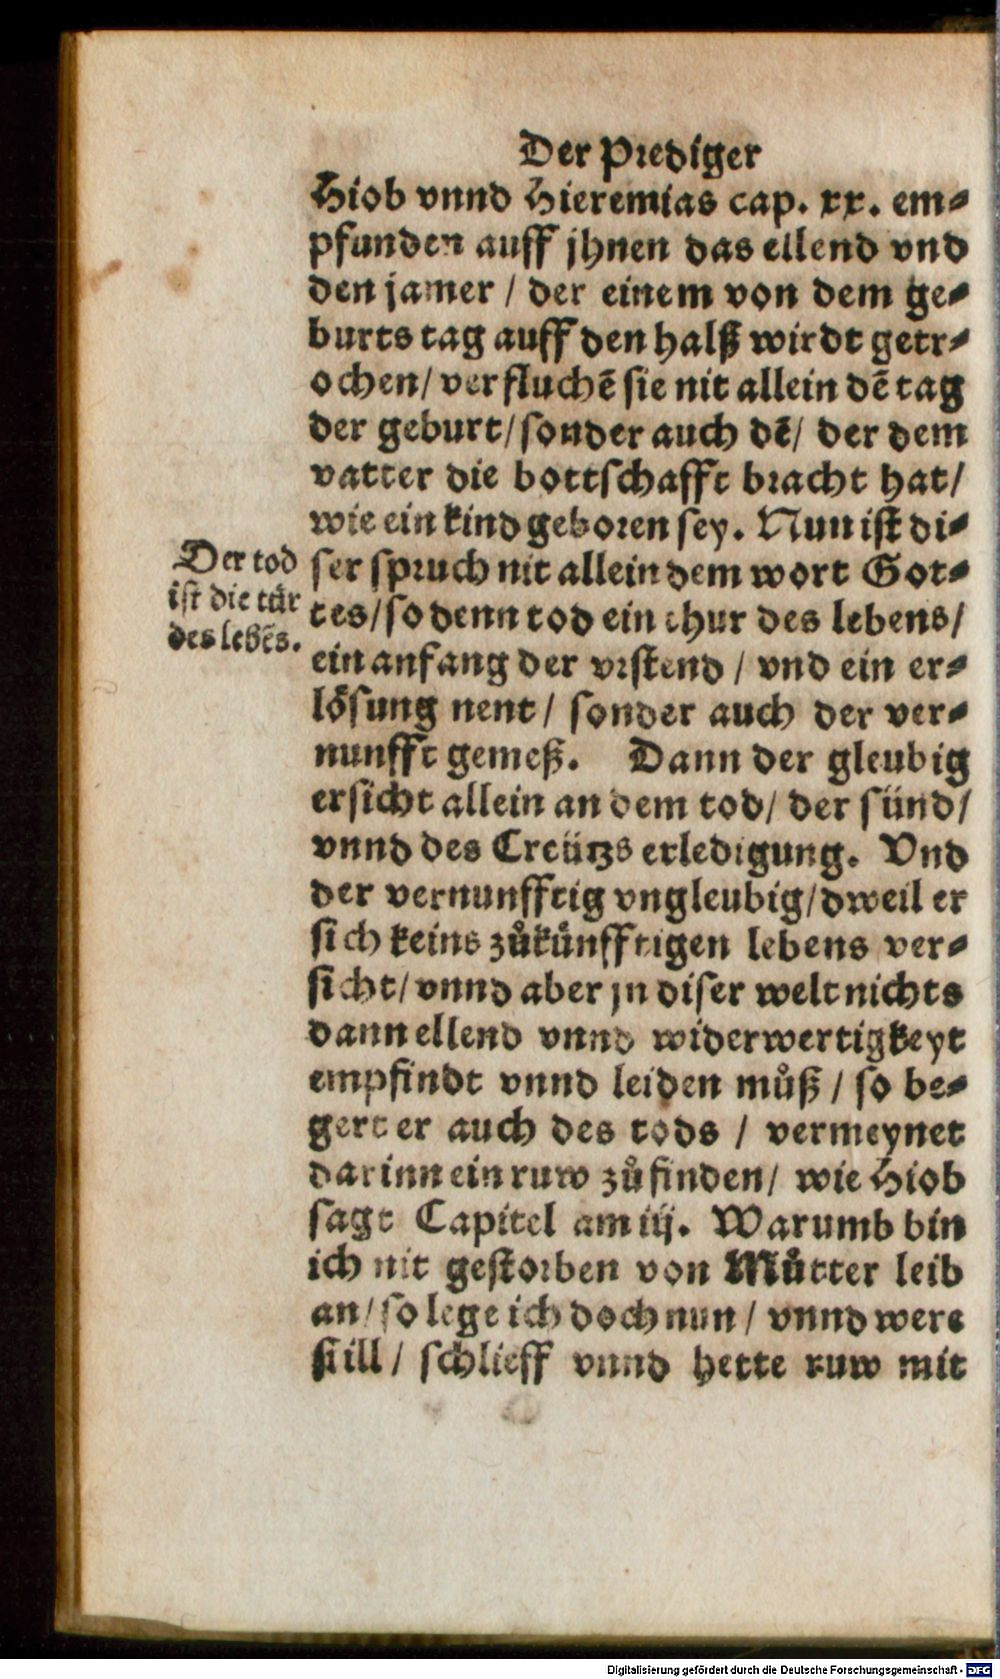 Der Prediger
Hiob vnnd Hieremias cap. xx. em⸗
pfunden auff jhnen das ellend vnd
den jamer / der einem von dem ge⸗
burts tag auff den halß wirdt getr⸗
ochen/ verfluchē sie nit allein dē tag
der geburt/ sonder auch dē/ der dem
vatter die bottschafft bracht hat/
wie ein kind geboren sey. Nun ist di⸗
ser spruch nit allein dem wort Got⸗
Der tod
ist die tür
des lebēs.
tes/ so denn tod ein thur des lebens/
ein anfang der vrstend / vnd ein er⸗
lösung nent/ sonder auch der ver⸗
nunfft gemeß. Dann der gleubig
ersicht allein an dem tod/ der sünd/
vnnd des Creützs erledigung. Vnd
der vernunfftig vngleubig/ dweil er
sich keins zůkünfftigen lebens ver⸗
sicht/ vnnd aber jn diser welt nichts
dann ellend vnnd widerwertigkeyt
empfindt vnnd leiden můß / so be⸗
gert er auch des tods / vermeynet
darinn ein ruw zů finden/ wie Hiob
sagt Capitel am iij. Warumb bin
ich nit gestorben von Můtter leib
an/ so lege ich doch nun/ vnnd were
still/ schlieff vnnd hette ruw mit
Digitalisierung gefördert durch die Deutsche Forschungsgemeinschaft - DFG